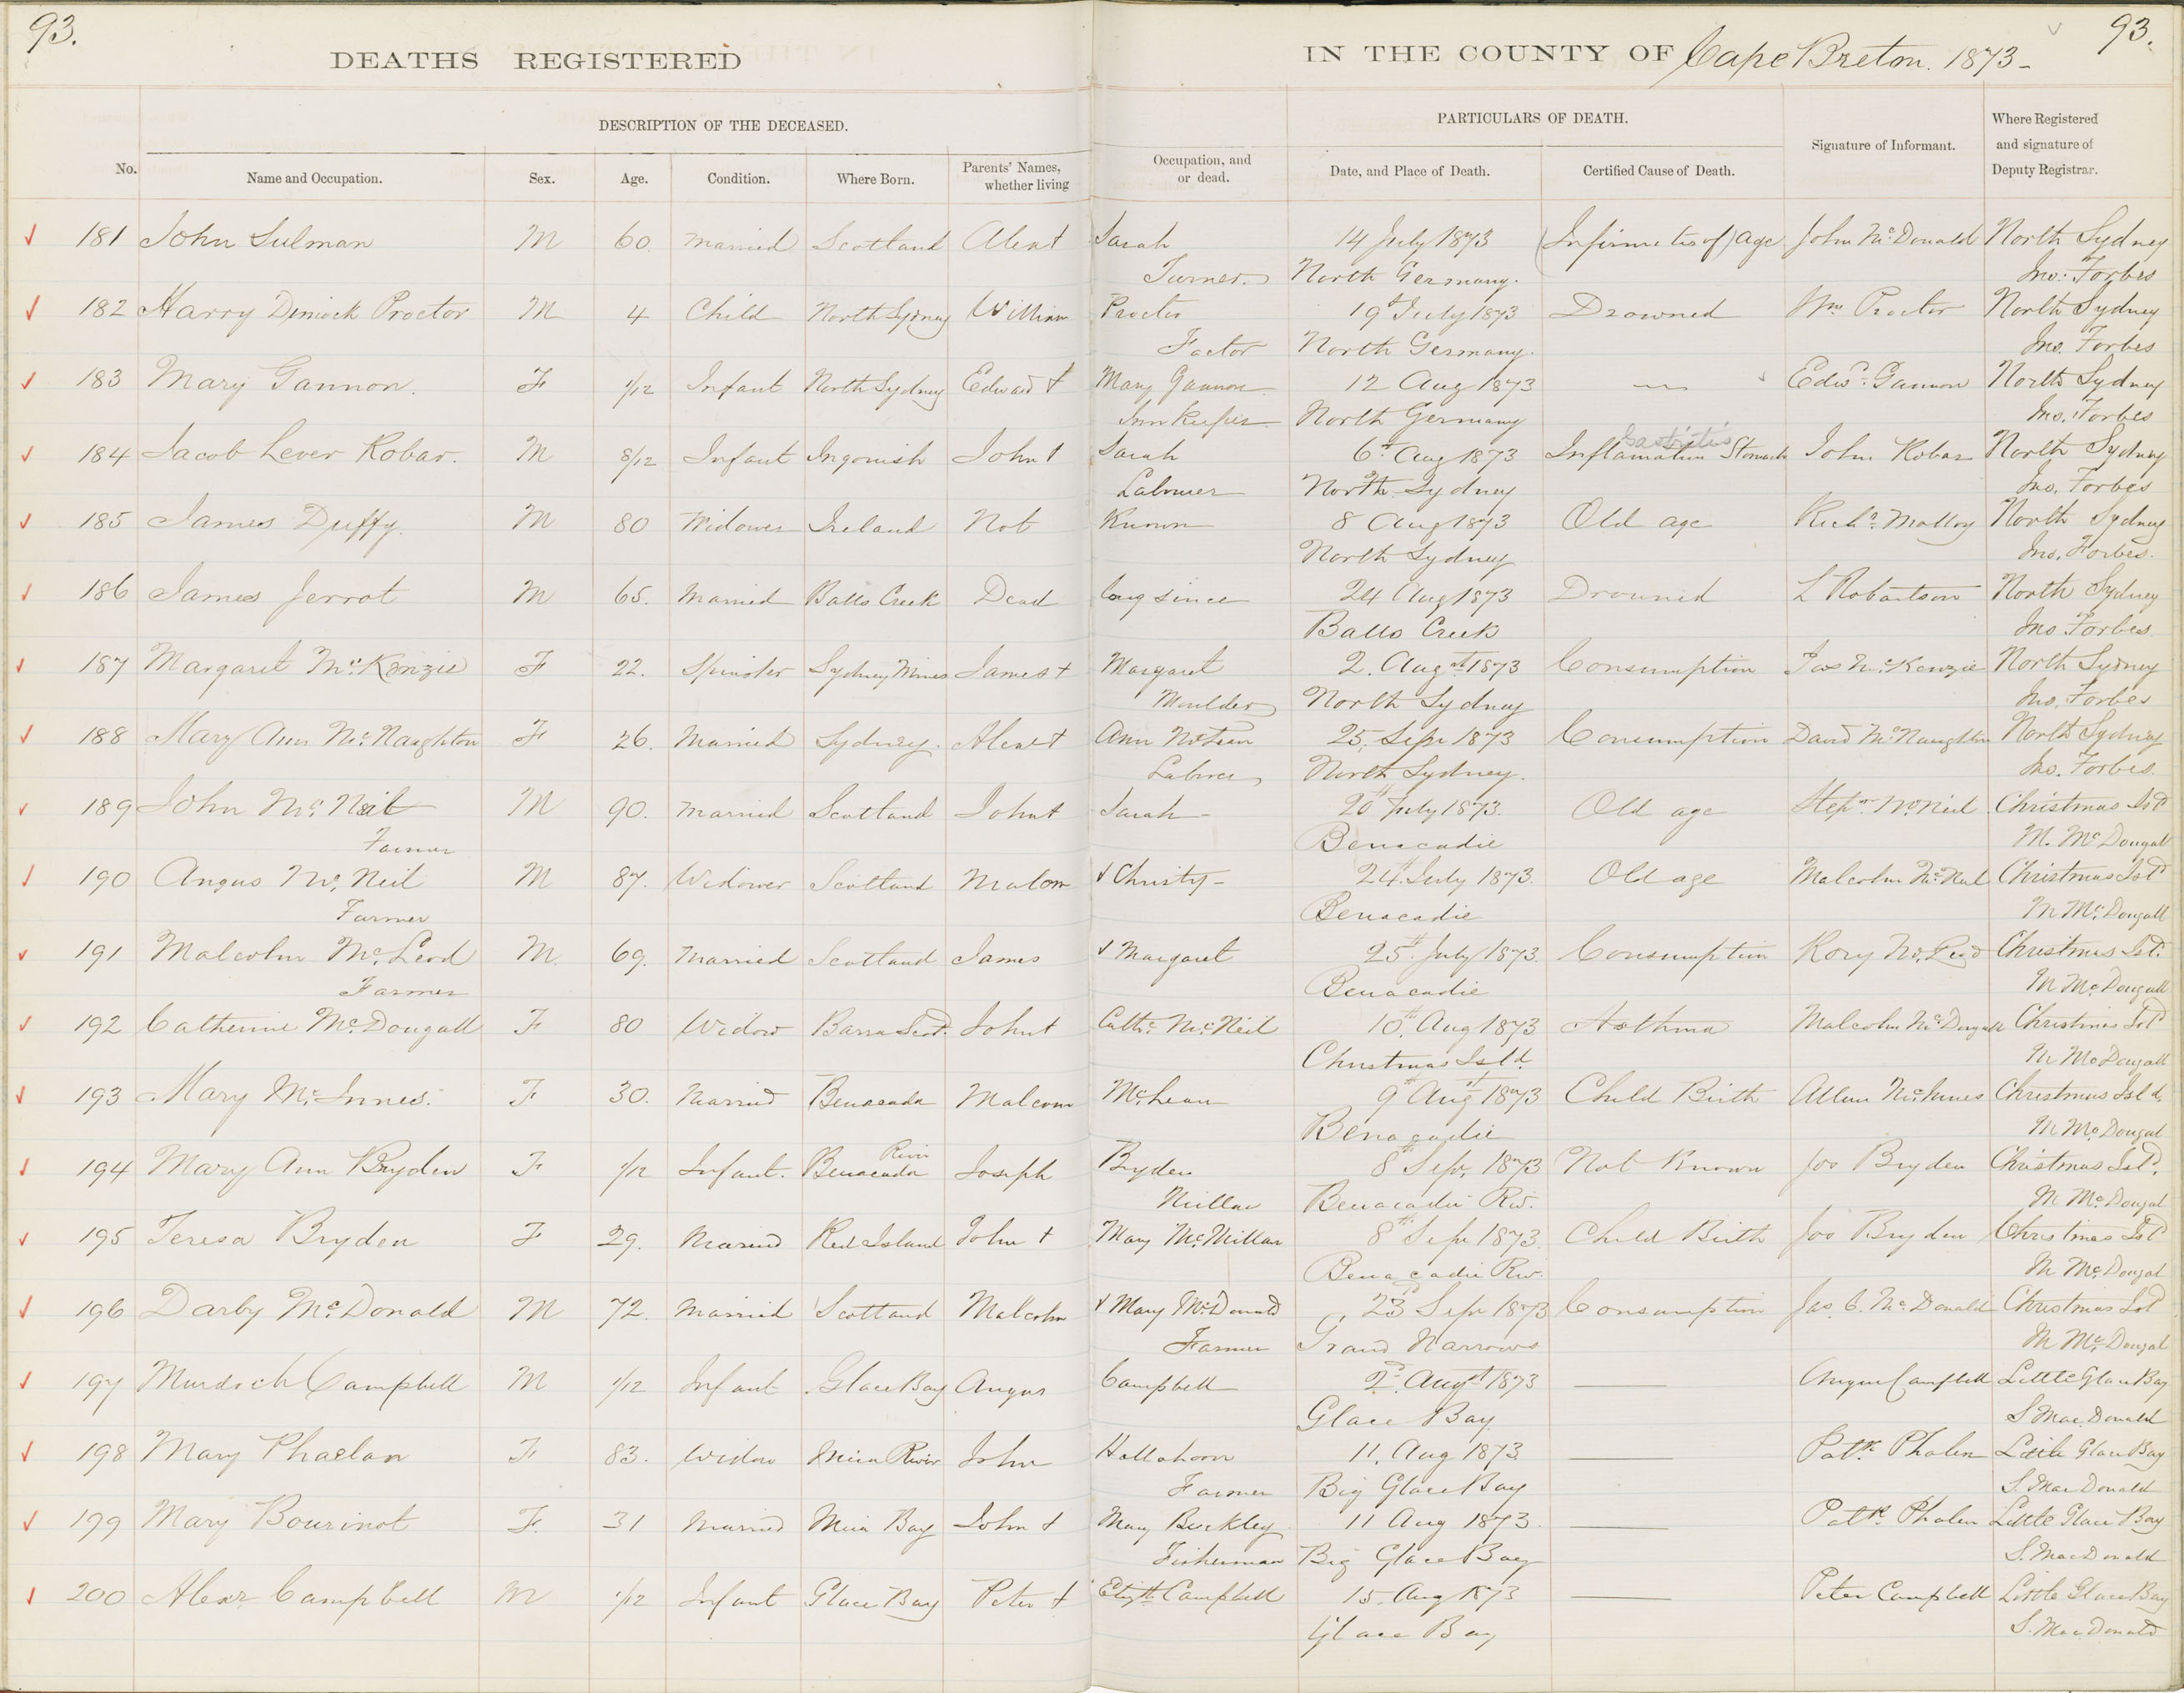 93.
93.
DEATHS REGISTERED IN THE COUNTY OF Cape Breton. 1873-
DESCRIPTION OF THE DECEASED.
PARTICULARS OF DEATH.
Where Registered
and signature of
Deputy Registrar.
Signature of Informant.
No. Name and Occupation. Sex. Age. Condition. Where Born. Parents' Names, whether living Occupation, and or dead. Date, and Place of Death. Certified Cause of Death.
181 John Sulman M 60. Married Scotland Alexr + Sarah 14 July 1873 Infirmities of Age John McDonald North Sydney
Turner North Germany. Jno. Forbes
182 Harry Dimock Proctor M 4 Child North Sydney William Proctor 19th July 1873 Drowned Wm Proctor North Sydney
Factor North Germany. Jno. Forbes
183 Mary Gannon. F 1/12 Infant North Sydney Edward + Mary Gannon 12 Aug 1873 — Edwd. Gannon North Sydney
Inn Keeper North Germany Jno. Forbes
Gastritis
184 Jacob Lever Robar. M 8/12 Infant Ingonish John + Sarah 6th Aug 1873 Inflamation Stomach John Robar North Sydney
Labourer North Sydney Jno. Forbes
185 James Duffy. M 80 Widower Ireland Not Known 8 Aug 1873 Old age Richd. Malloy North Sydney
North Sydney Jno. Forbes.
186 James Jerrot M 65. Married Balls Creek Dead long since 24 Aug 1873 Drowned L Robertson North Sydney
Balls Creek Jno Forbes.
187 Margaret McKenzie F 22. Spinster Sydney Mines James + Margaret 2. Augst 1873 Consumption Jas McKenzie North Sydney
Moulder North Sydney Jno. Forbes
188 Mary Ann McNaughton F 26. Married Sydney. Alexr + Ann 25. Sepr 1873 Consumption David McNaughton North Sydney
Labourer North Sydney. Jno. Forbes.
189 John McNeil M 90. Married Scotland John + Sarah - 20th July 1873. Old age Stepn McNeil Christmas Isd
Farmer Benacadie M. McDougal
190 Angus McNeil M 87. Widower Scotland Malcom + Christy - 24th July 1873. Old age Malcolm McNeil Christmas Isd
Farmer Benacadie M McDougall
191 Malcolm McLeod M. 69. Married Scotland James + Margaret 25th July 1873. Consumption Rory McLeod Christmas Isd.
Farmer Benacadie M McDougall
192 Catherine McDougall F 80 Widow Barra Scot. John + Cathe McNeil 10th Aug 1873 Asthma Malcolm McDougall Christmas Isd
Christmas Isld. M McDougall
193 Mary McInnes. F 30. Married Benacada Malcom McLean 9th Augst 1873 Child Birth Allan McInnes Christmas Isld.
Benacadie M McDougal
River
194 Mary Ann Bryden F 1/12 Infant. Benacada Joseph Bryden 8th Sepr 1873 Not Known Jos Bryden Christmas Isd.
Benacadie Rv. M McDougal
195 Teresa Bryden F 29. Married Red Island John + Mary McMillan 8th Sepr 1873. Child Birth Jos Bryden Christmas Isd
Benacadie Rv. M McDougal
196 Darby McDonald M 72. Married Scotland Malcolm + Mary McDonald 23rd Sepr 1873 Consumption Jas. C. McDonald Christmas Isd
Farmer Grand Narrows M McDougal
197 Murdoch Campbell M 1/12 Infant Glace Bay Angus Campbell 2d. Augst 1873 — Angus Campbell Little Glace Bay
Glace Bay S MacDonald
198 Mary Phaelan F 83. Widow Mira River John 11. Aug 1873 — Patk. Phalen Little Glace Bay
Farmer Big Glace Bay S. MacDonald
199 Mary Bourinot F. 31 Married Mira Bay John + Mary Buckley 11 Aug 1873. — Patk. Phalen Little Glace Bay
Fisherman Big Glace Bay S. MacDonald
200 Alexr Campbell M 1/12 Infant Glace Bay Peter + Elizth Campbell 15. Aug 1873 — Peter Campbell Little Glace Bay
Glace Bay S. MacDonald